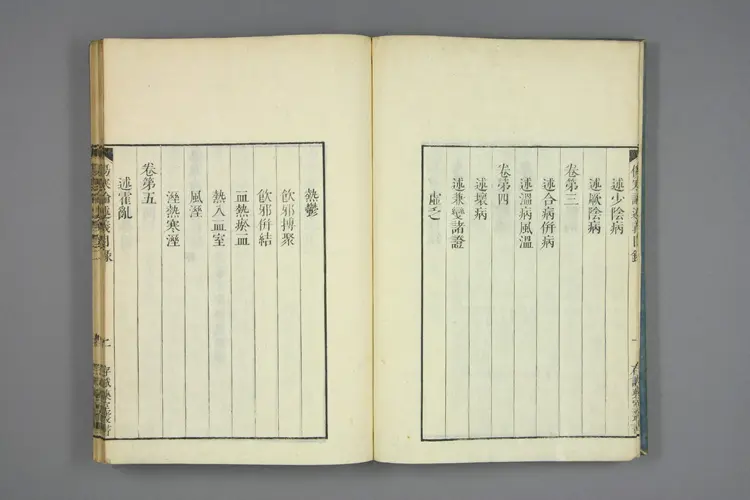 述少陰病
述厥陰病
卷第三
述合病併病
述溫病風溫
卷第四
述壞病
述兼變諸證
虛乏
熱鬱
飲邪搏聚
飲邪併結
血熱瘀血
熱入血室
風溼
溼熱寒溼
卷第五
述霍亂